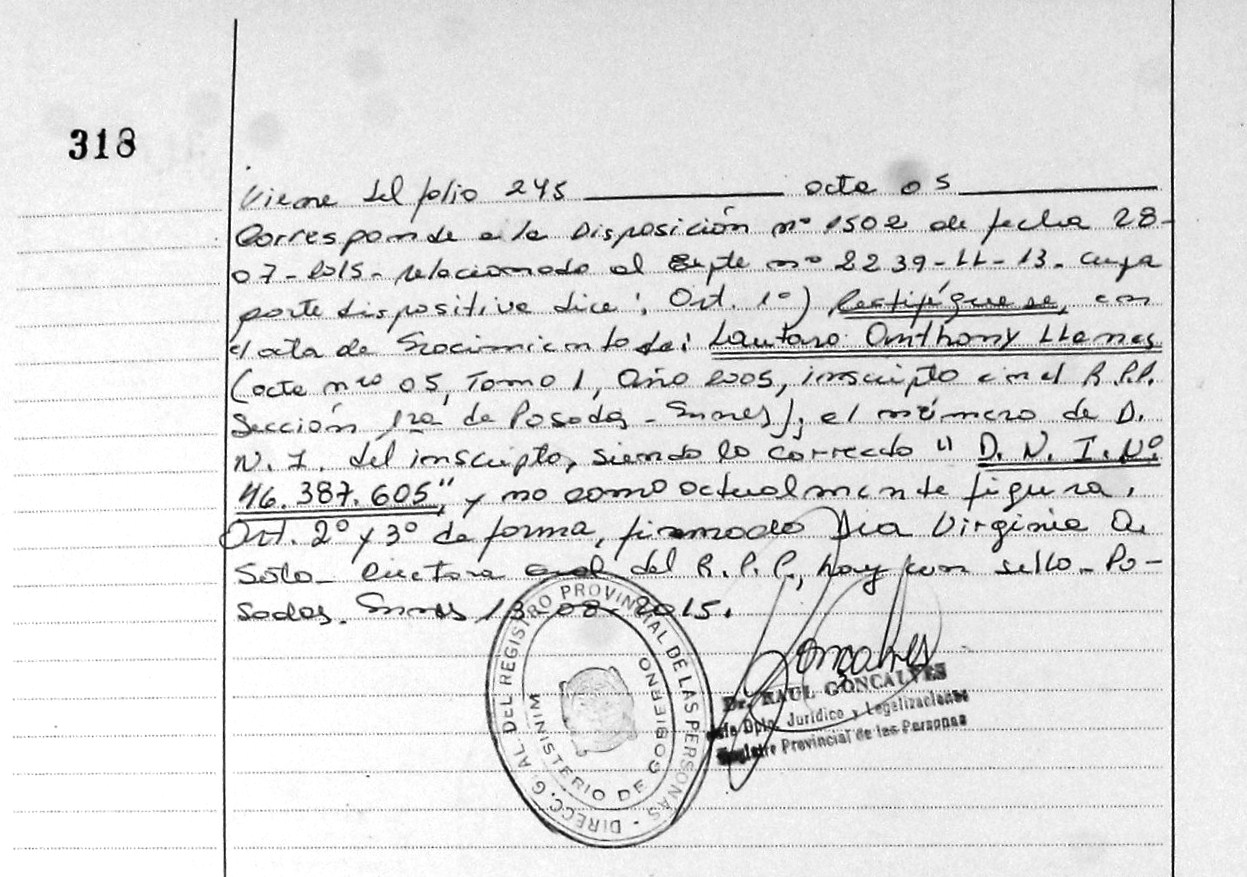 318
Viene del folio 245 acta 05
Corresponde a la Disposición nº 1502 de fecha 28-
07-2015- relacionado al Expte nº 2239-LL-13- cuya
parte dispositiva dice: Art. 1º) Rectifíquese, en
el acta de Nacimiento de: Lautaro Anthony Llanes
(acta nro 05, Tomo 1, Año 2005, inscripto en el R.P.P.
Sección 1ra de Posadas - Mnes), el número de D.
N. I. del inscripto, siendo lo correcto "D. N. I. Nº
46.387.605", y no como actualmente figura.
Art. 2º y 3º de forma, firmado Virginia A.
Soto - Directora Gral del R.P.P., hay un sello - Po-
sadas. Mnes 13-08-2015.
DIRECC. G. AL. DEL REGISTRO PROVINCIAL DE LAS PERSONAS -
MINISTERIO DE GOBIERNO
Goncalves
Dr. RAUL GONCALVES
Jefe Dpto. Jurídico y Legalizaciones
Registro Provincial de las Personas